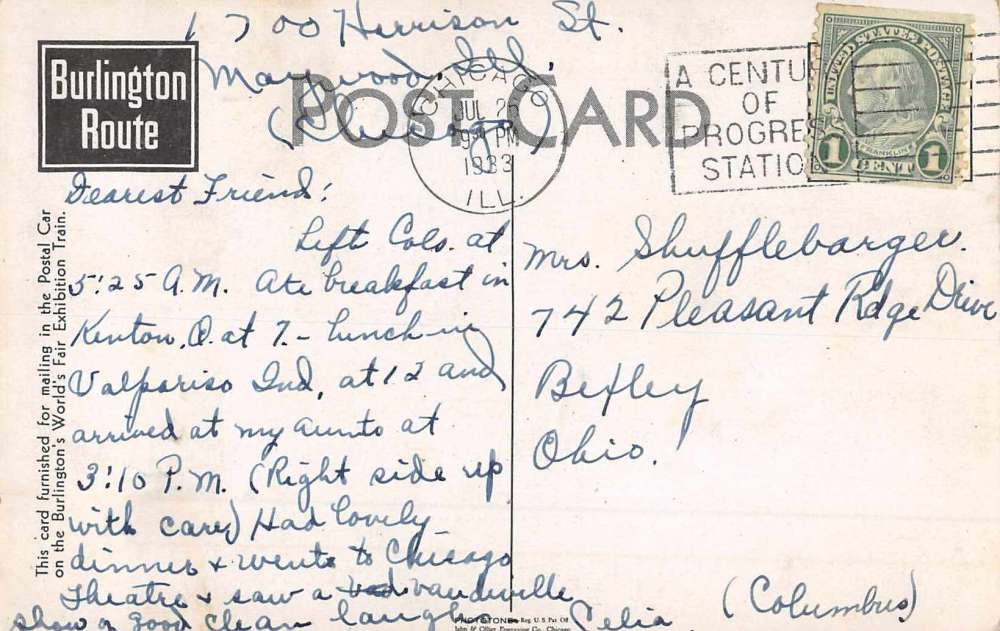 1700 Harrison St.
Maywood, Ill.
(Chicago)
Burlington
Route
POST CARD
CHICAGO
JUL 26
9 PM
1933
ILL.
A CENTU
OF
PROGRES
STATIO
UNITED STATES POSTAGE
FRANKLIN
1 CENT 1
This card furnished for mailing in the Postal Car
on the Burlington's World's Fair Exhibition Train.
Dearest Friend:
Left Cols. at
5:25 A.M. Ate breakfast in
Kenton, O. at 7. - Lunch in
Valpariso Ind, at 12 and
arrived at my aunts at
3:10 P.M. (Right side up
with care) Had lovely
dinner & went to Chicago
Theatre & saw a vaudeville
show & good clean laugh
Celia
Mrs. Shufflebarger.
742 Pleasant Rdge Drive
Bexley
Ohio.
(Columbus)
PHOTOTONE Reg. U.S. Pat. Of
John & Ollier Engraving Co., Chicago